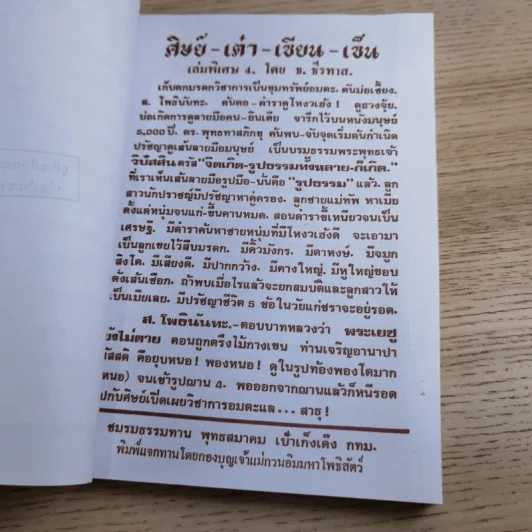 ศิษย์-เต๋า-เซียน-เซ็น
เล่มพิเศษ 4. โดย ธ. ธีรทาส.
เก็บตกมรดกวิชาการเป็นขุมทรัพย์อมตะ. ค้นม่อเซี้ยง.
ส. โพธินันทะ. ค้นคอ-ตำราดูโหงวเฮ้ง! ดูฮวงจุ้ย.
บ่อเกิดการดูลายมือคน-อินเดีย จารึกไว้บนหนังมนุษย์
๕,๐๐๐ ปี. ดร. พุทธทาสภิกขุ ค้นพบ-จับจุดเริ่มต้นกำเนิด
ปรัชญาดูเส้นลายมือมนุษย์ เป็นบรมธรรมพระพุทธเจ้า
วิปัสสินตรัส "จิตเกิด-รูปธรรมทั้งหลาย-ก็เกิด."
ที่เราเห็นเส้นลายมือรูปมือ-นั่นคือ "รูปธรรม" แล้ว. ลูก
สาวนักปราชญ์มีปรัชญาหาคู่ครอง. ลูกชายแม่ทัพ หาเมีย
ตั้งแต่หนุ่มจนแก่-ขึ้นคานหมด. สอนตำราขี้เหนียวจนเป็น
เศรษฐี. มีตำราค้นหาชายหนุ่มที่มีโหงวเฮ้งดี จะเอามา
เป็นลูกเขยไว้สืบมรดก. มีคิ้วมังกร. มีตาหงษ์. มีจมูก
สิงโต. มีเสียงดี. มีปากกว้าง. มีคางใหญ่. มีหูใหญ่ชอบ
ตั้งเส้นเชือก. ถ้าพบเมื่อไรแล้วจะยกสมบัติและลูกสาวให้
เป็นเมียเลย. มีปรัชญาชีวิต ๕ ข้อในวัยแก่ชราจะอยู่รอด.
ส. โพธินันทะ.-ตอบบาทหลวงว่า พระเยซู
ยังไม่ตาย ตอนถูกตรึงไม้กางเขน ท่านเจริญอานาปา
สติ คือยุบหนอ! พองหนอ! ดูในรูปท้องพองโตมาก
หนอ) จนเข้ารูปฌาน 4. พอออกจากฌานแล้วก็หนีรอด
กับศิษย์เปิดเผยวิชาการอมตะแล...สาธุ!
ชมรมธรรมทาน พุทธสมาคม เป้าเก็งเต๊ง กทม.
พิมพ์แจกทานโดยกองบุญเจ้าแม่กวนอิมมหาโพธิสัตว์